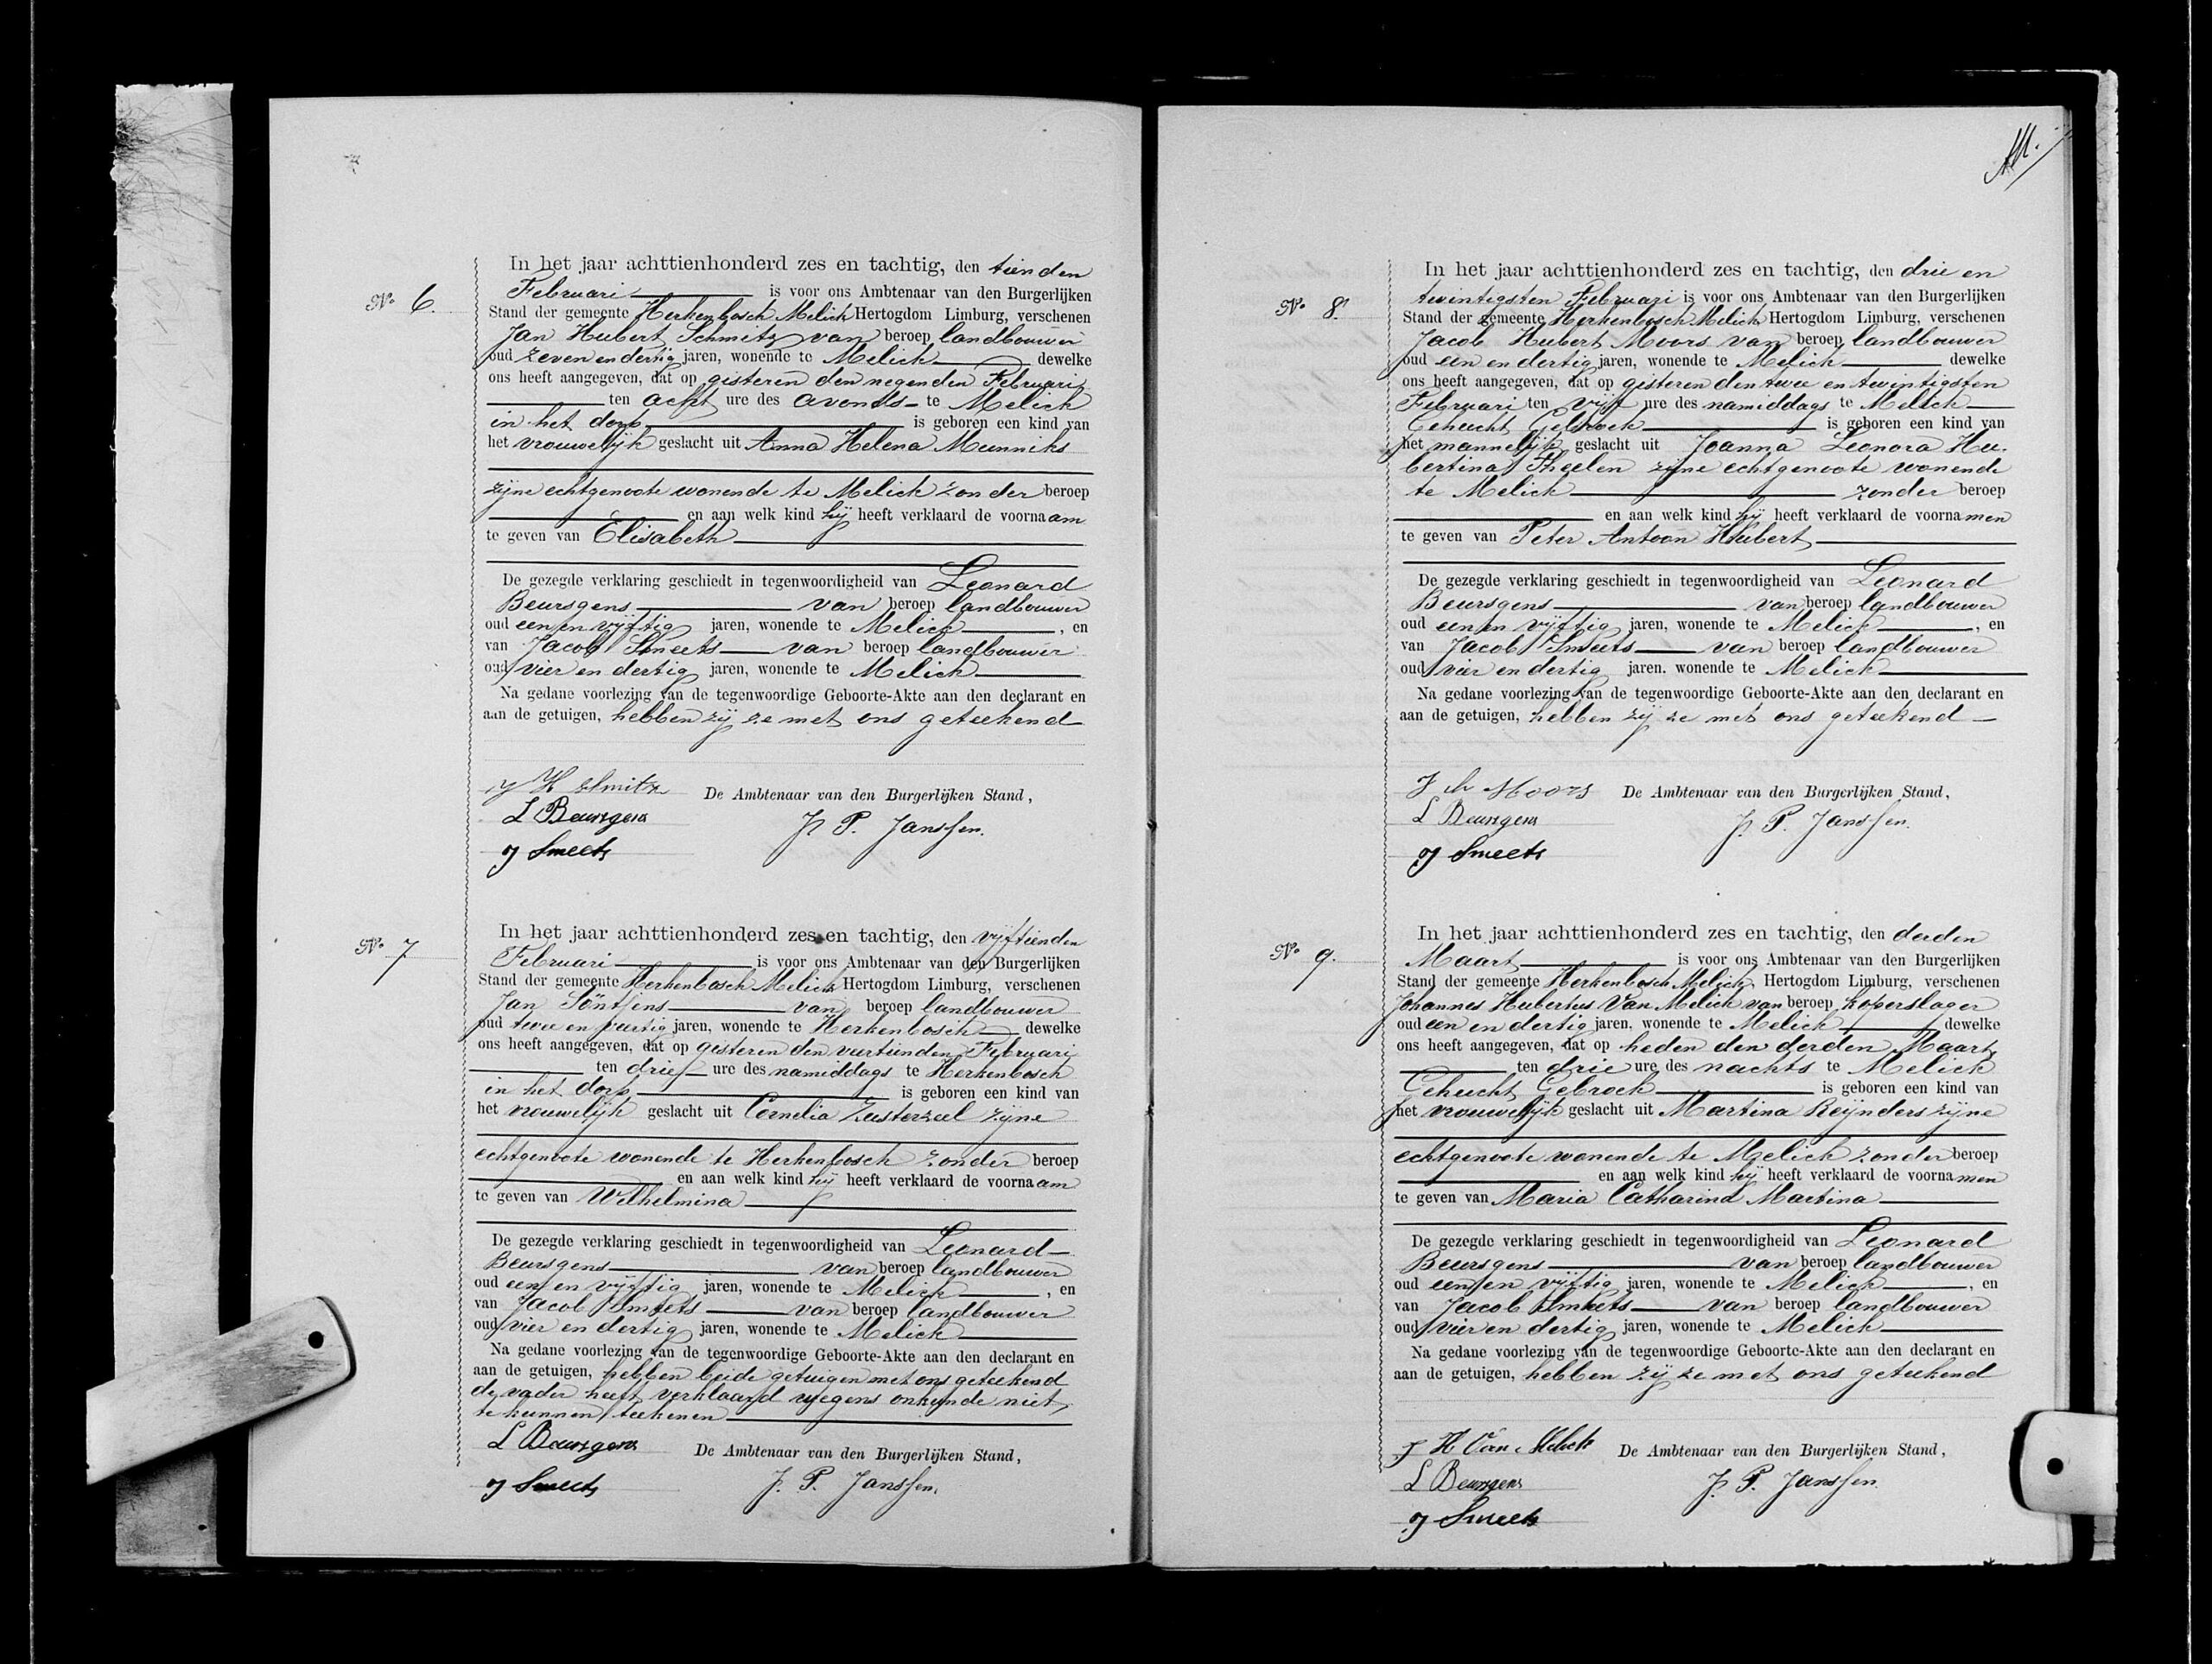 No 6.
In het jaar achttienhonderd zes en tachtig, den tienden
Februari is voor ons Ambtenaar van den Burgerlijken
Stand der gemeente Herkenbosch Melick Hertogdom Limburg, verschenen
Jan Hubert Schmitz van beroep landbouwer
oud zeven en dertig jaren, wonende te Melick dewelke
ons heeft aangegeven, dat op gisteren den negenden Februari
ten acht ure des avonds te Melick
in het dorp is geboren een kind van
het vrouwelijk geslacht uit Anna Helena Munniks
zijne echtgenoote wonende te Melick zonder beroep
en aan welk kind hij heeft verklaard de voornaam
te geven van Elisabeth
De gezegde verklaring geschiedt in tegenwoordigheid van Leonard
Beursgens van beroep landbouwer
oud een en vijftig jaren, wonende te Melick, en
van Jacob Smeets van beroep landbouwer
oud vier en dertig jaren, wonende te Melick
Na gedane voorlezing van de tegenwoordige Geboorte-Akte aan den declarant en
aan de getuigen, hebben zij ze met ons geteekend
J H Smitz De Ambtenaar van den Burgerlijken Stand,
L Beursgens J. P. Janssen.
J Smeets
No 7
In het jaar achttienhonderd zes en tachtig, den vijftienden
Februari is voor ons Ambtenaar van den Burgerlijken
Stand der gemeente Herkenbosch Melick Hertogdom Limburg, verschenen
Jan Söntjens van beroep landbouwer
oud twee en veertig jaren, wonende te Herkenbosch dewelke
ons heeft aangegeven, dat op gisteren den veertienden Februari
ten drie ure des namiddags te Herkenbosch
in het dorp is geboren een kind van
het vrouwelijk geslacht uit Cornelia Zusterzeel zijne
echtgenoote wonende te Herkenbosch zonder beroep
en aan welk kind hij heeft verklaard de voornaam
te geven van Wilhelmina
De gezegde verklaring geschiedt in tegenwoordigheid van Leonard
Beursgens van beroep landbouwer
oud een en vijftig jaren, wonende te Melick, en
van Jacob Smeets van beroep landbouwer
oud vier en dertig jaren, wonende te Melick
Na gedane voorlezing van de tegenwoordige Geboorte-Akte aan den declarant en
aan de getuigen, hebben beide getuigen met ons geteekend
de vader heeft verklaard wegens onkunde niet
te kunnen teekenen
L Beursgens De Ambtenaar van den Burgerlijken Stand,
J Smeets J. P. Janssen.
No 8.
In het jaar achttienhonderd zes en tachtig, den drie en
twintigsten Februari is voor ons Ambtenaar van den Burgerlijken
Stand der gemeente Herkenbosch Melick Hertogdom Limburg, verschenen
Jacob Hubert Moors van beroep landbouwer
oud een en dertig jaren, wonende te Melick dewelke
ons heeft aangegeven, dat op gisteren den twee en twintigsten
Februari ten vijf ure des namiddags te Melick
Gehucht Gebroek is geboren een kind van
het mannelijk geslacht uit Joanna Leonora Hu-
bertina Theelen zijne echtgenoote wonende
te Melick zonder beroep
en aan welk kind hij heeft verklaard de voornamen
te geven van Peter Antoon Hubert
De gezegde verklaring geschiedt in tegenwoordigheid van Leonard
Beursgens van beroep landbouwer
oud een en vijftig jaren, wonende te Melick, en
van Jacob Smeets van beroep landbouwer
oud vier en dertig jaren. wonende te Melick
Na gedane voorlezing van de tegenwoordige Geboorte-Akte aan den declarant en
aan de getuigen, hebben zij ze met ons geteekend
J h Moors De Ambtenaar van den Burgerlijken Stand,
L Beursgens J. P. Janssen.
J Smeets
No 9.
In het jaar achttienhonderd zes en tachtig, den derden
Maart is voor ons Ambtenaar van den Burgerlijken
Stand der gemeente Herkenbosch Melick Hertogdom Limburg, verschenen
Johannes Hubertus Van Melick van beroep koperslager
oud een en dertig jaren, wonende te Melick dewelke
ons heeft aangegeven, dat op heden den derden Maart
ten drie ure des nachts te Melick
Gehucht Gebroek is geboren een kind van
het vrouwelijk geslacht uit Martina Reijnders zijne
echtgenoote wonende te Melick zonder beroep
en aan welk kind hij heeft verklaard de voornamen
te geven van Maria Catharina Martina
De gezegde verklaring geschiedt in tegenwoordigheid van Leonard
Beursgens van beroep landbouwer
oud een en vijftig jaren, wonende te Melick, en
van Jacob Smeets van beroep landbouwer
oud vier en dertig jaren, wonende te Melick
Na gedane voorlezing van de tegenwoordige Geboorte-Akte aan den declarant en
aan de getuigen, hebben zij ze met ons geteekend
J H Van Melick De Ambtenaar van den Burgerlijken Stand,
L Beursgens J. P. Janssen.
J Smeets